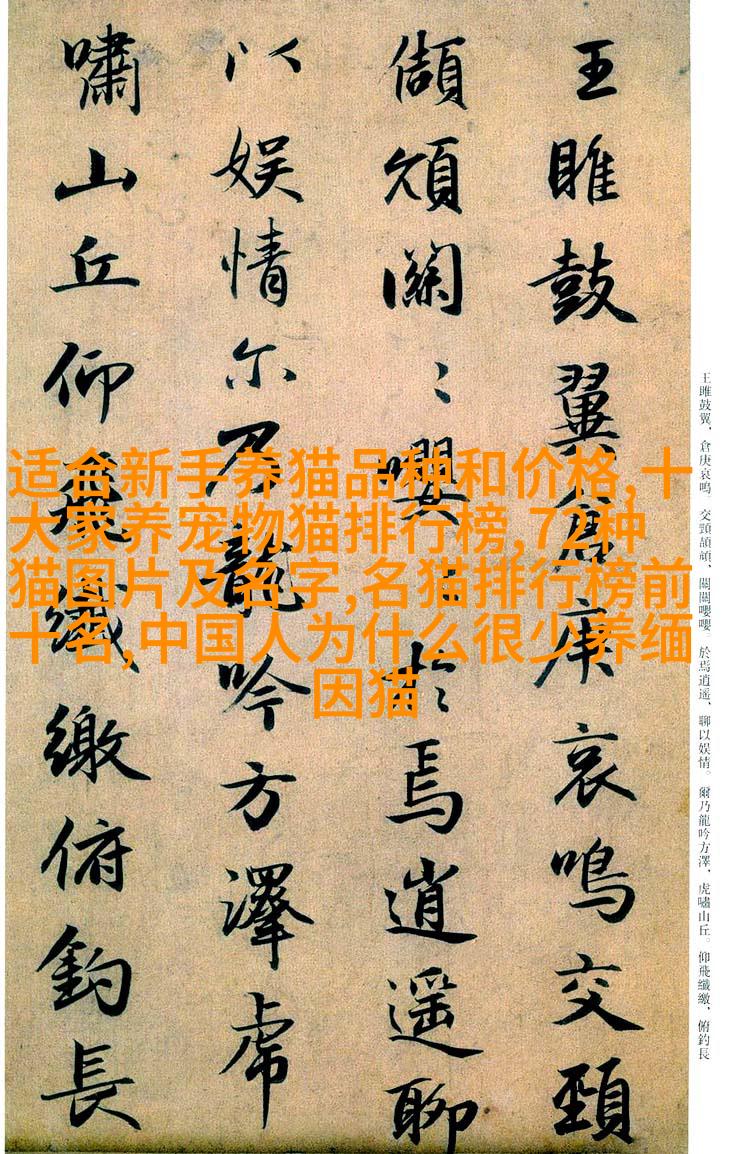 王雎鼓翼倉庚哀鳴交頸
頡頏關〻嚶〻於焉逍遥聊
以娱情尔乃龍吟方澤虎
嘯山丘仰飛纖繳俯釣長
王雎鼓翼、倉庚哀鳴。交頸頡頏、關關嚶嚶。於焉逍遥、聊以娱情。爾乃龍吟方澤、虎嘯山丘。仰飛纖繳、俯釣長
适合新手养猫品种和价格,十
大家养宠物猫排行榜,72种
猫图片及名字,名猫排行榜前
十名,中国人为什么很少养缅
因猫